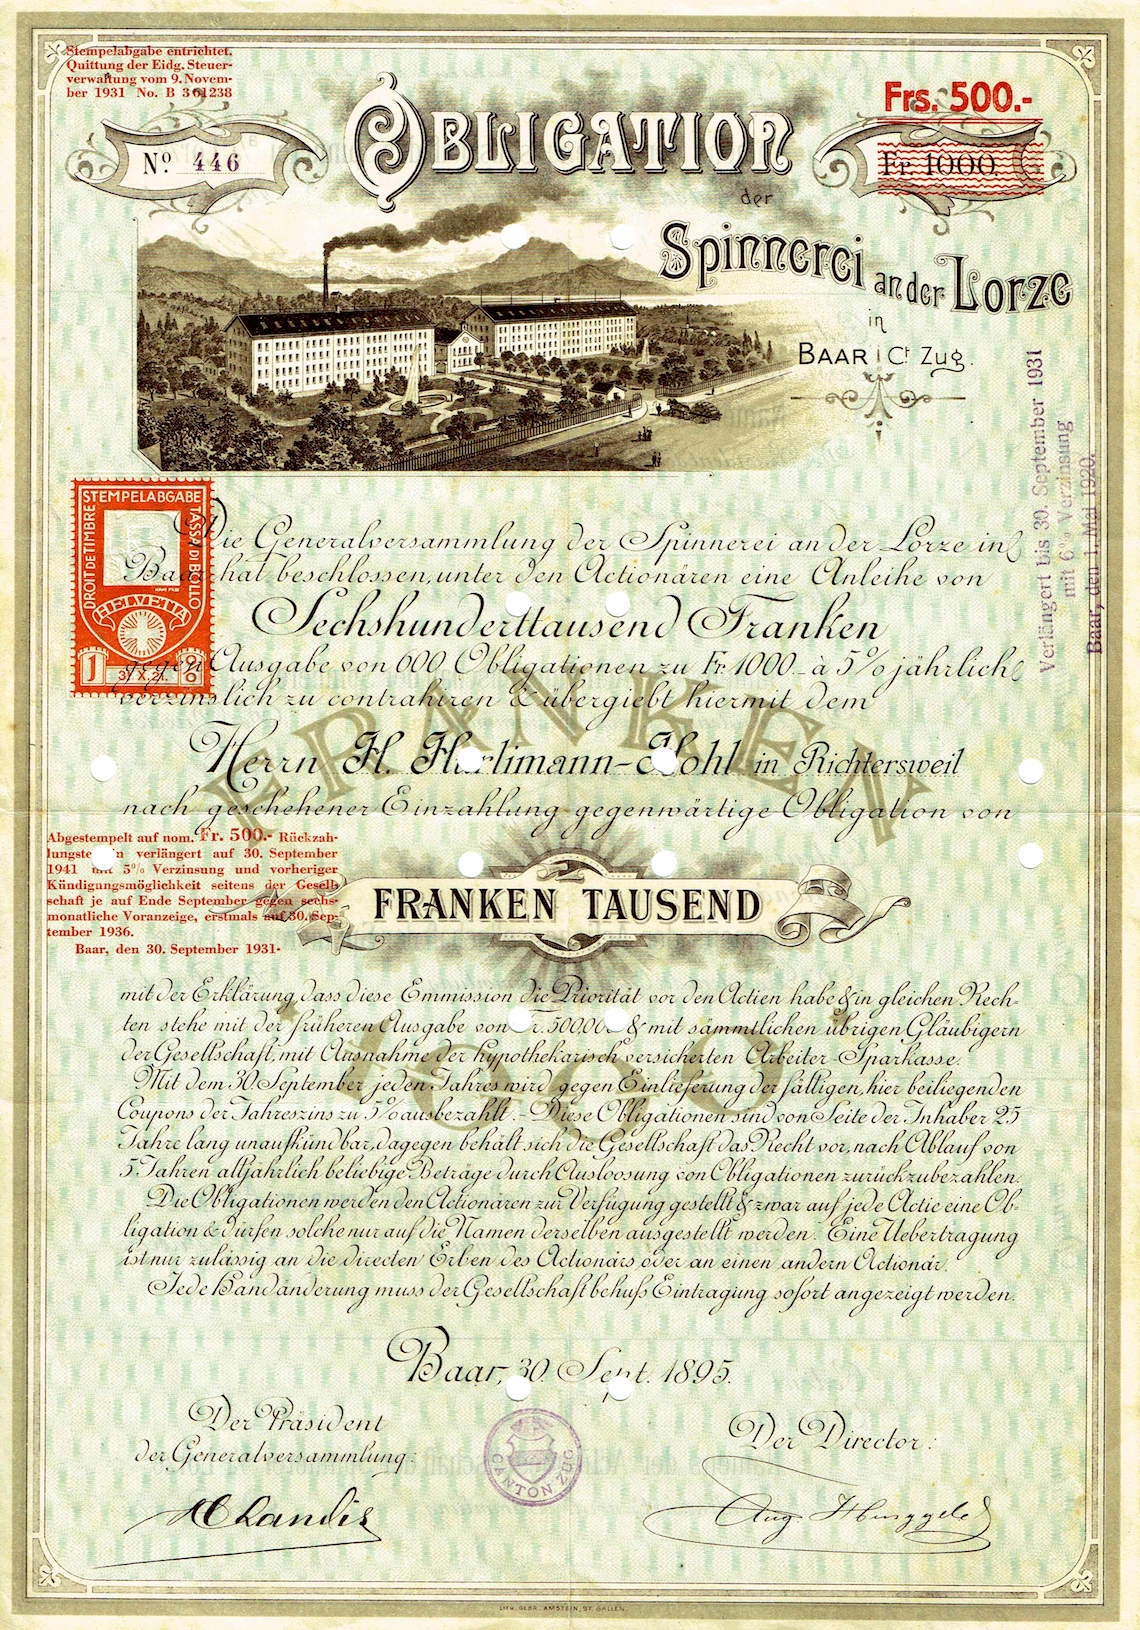 Stempelabgabe entrichtet.
Quittung der Eidg. Steuer-
verwaltung vom 9. Novem-
ber 1931 No. B 361238
Frs. 500.-
Nº 446
OBLIGATION
Fr. 1000
der
Spinnerei an der Lorze
in
BAAR Ct. Zug.
Verlängert bis 30. September 1931
mit 6% Verzinsung
Baar, den 1. Mai 1920.
STEMPELABGABE
DROIT DE TIMBRE
TASSA DI BOLLO
HELVETIA
1
Die Generalversammlung der Spinnerei an der Lorze in
Baar hat beschlossen, unter den Actionären eine Anleihe von
Sechshunderttausend Franken
gegen Ausgabe von 600 Obligationen zu Fr. 1000.- à 5% jährlich
verzinslich zu contrahiren & übergiebt hiermit dem
Herrn H. Hürlimann-Hohl in Richtersweil
nach geschehener Einzahlung gegenwärtige Obligation von
FRANKEN
Abgestempelt auf nom. Fr. 500.- Rückzah-
lungstermin verlängert auf 30. September
1941 mit 5% Verzinsung und vorheriger
Kündigungsmöglichkeit seitens der Gesell-
schaft je auf Ende September gegen sechs-
monatliche Voranzeige, erstmals auf 30. Sep-
tember 1936.
Baar, den 30. September 1931.
FRANKEN TAUSEND
mit der Erklärung, dass diese Emmission die Priorität vor den Actien habe & in gleichen Rech-
ten stehe mit der früheren Ausgabe von Fr. 500,000 & mit sämmtlichen übrigen Gläubigern
der Gesellschaft, mit Ausnahme der hypothekarisch versicherten Arbeiter-Sparkasse.
Mit dem 30. September jeden Jahres wird gegen Einlieferung der fälligen, hier beiliegenden
Coupons der Jahreszins zu 5% ausbezahlt. - Diese Obligationen sind von Seite der Inhaber 25
Jahre lang unaufkündbar, dagegen behält sich die Gesellschaft das Recht vor, nach Ablauf von
5 Jahren alljährlich beliebige Beträge durch Ausloosung von Obligationen zurückzubezahlen.
Die Obligationen werden den Actionären zur Verfügung gestellt & zwar auf jede Actie eine Ob-
ligation & dürfen solche nur auf die Namen derselben ausgestellt werden. Eine Uebertragung
ist nur zulässig an die directen Erben des Actionärs, oder an einen andern Actionär.
Jede Handänderung muss der Gesellschaft behufs Eintragung sofort angezeigt werden.
1000
Baar, 30. Sept. 1895.
Der Präsident
der Generalversammlung:
Der Director:
CANTON ZUG
LITH. GEBR. AMSTEIN, ST. GALLEN.